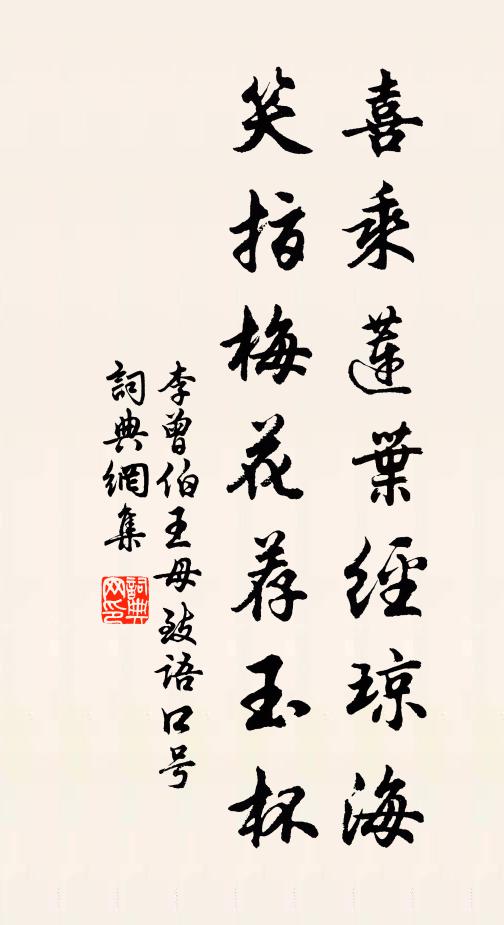 喜乘蓮葉經琼海
笑指梅花荐玉杯
李曾伯王母致语口号
詞典網集
詞典网印